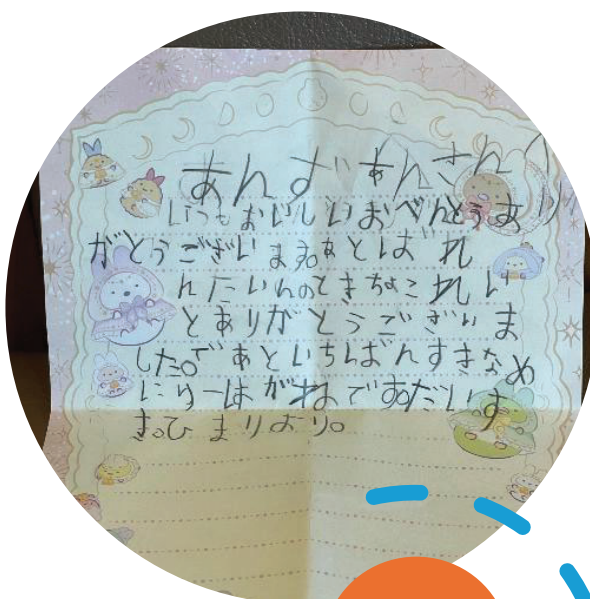 あんどぁんさん
いつもおいしいおべんとうあり
がとうございます。あとばれ
んたいんのてきちょこれい
とありがとうございま
した。であといちばんすきなめ
にゅーはがねですだいす
き。ひまりより。